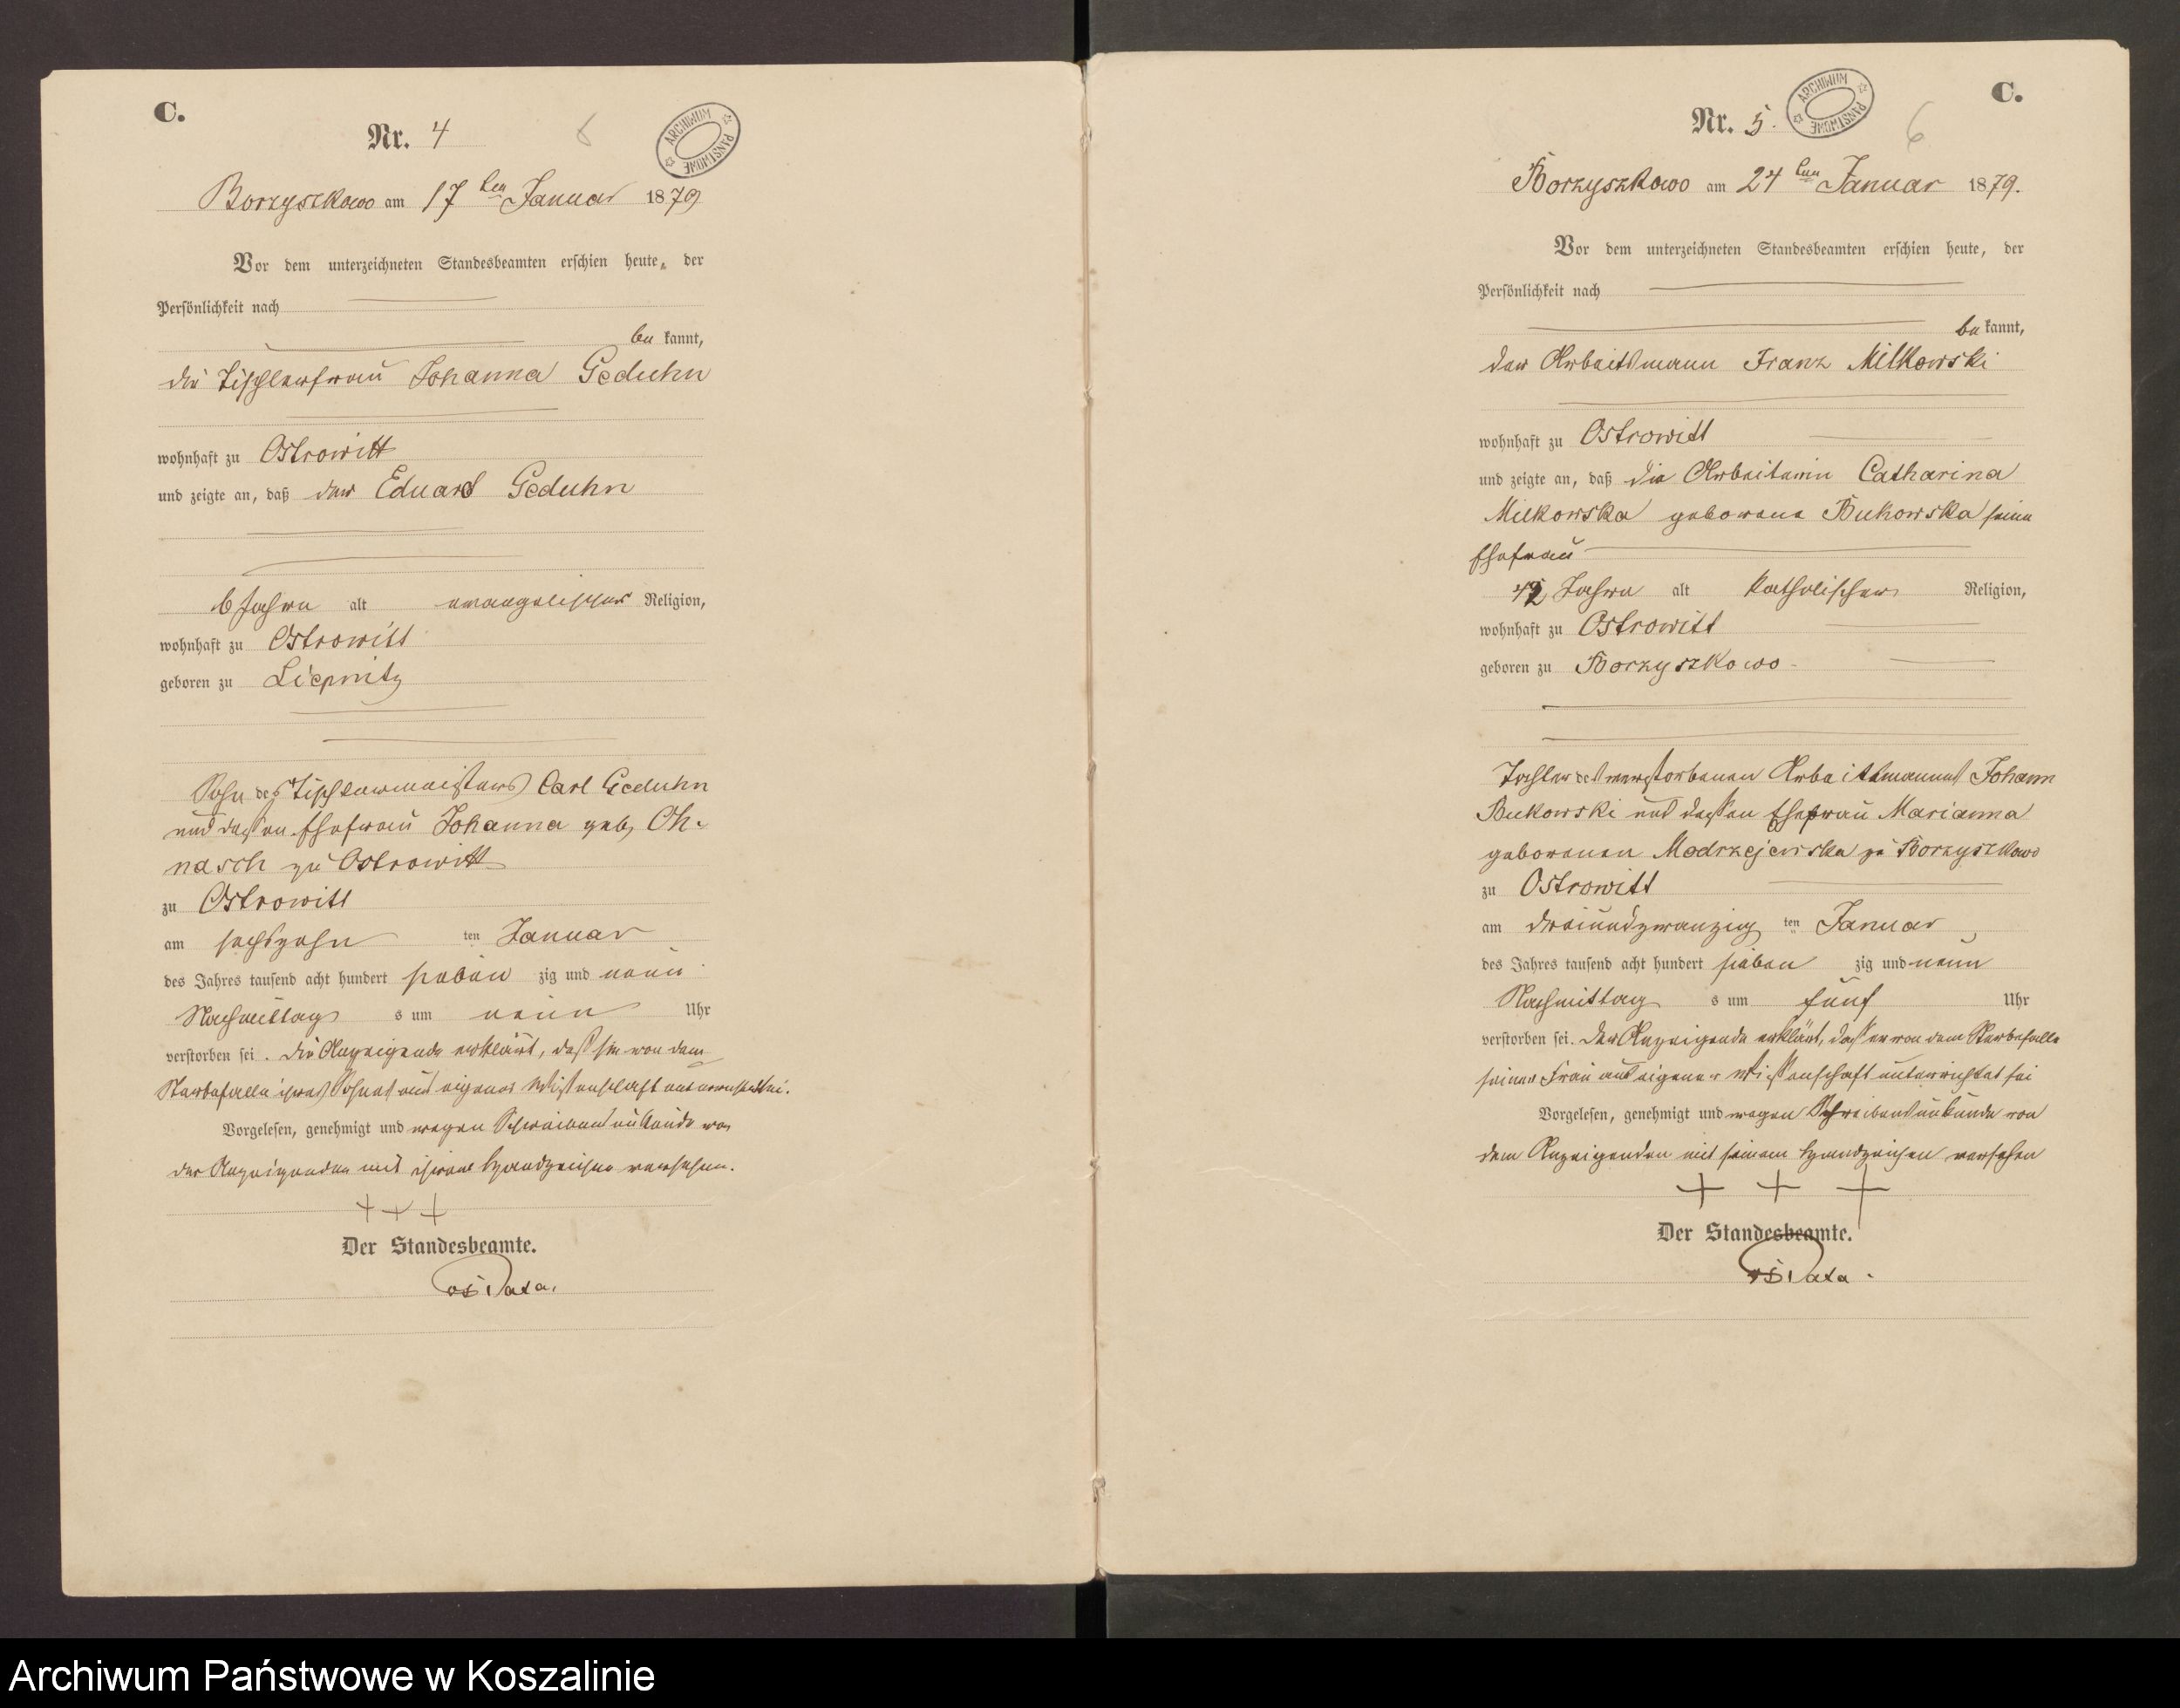 C.
Nr. 4
ARCHIWUM PAŃSTWOWE
Borzyszkowo am 17ten Januar 1879
Vor dem unterzeichneten Standesbeamten erschien heute, der
Persönlichkeit nach
be kannt,
die Tischlerfrau Johanna Geduhn
wohnhaft zu Ostrowitt
und zeigte an, daß der Eduard Geduhn
6 Jahre alt evangelischer Religion,
wohnhaft zu Ostrowitt
geboren zu Liepnitz
Sohn des Tischlermeisters Carl Geduhn
und dessen Ehefrau Johanna geb. Oh-
nasch zu Ostrowitt
zu Ostrowitt
am sechszehn ten Januar
des Jahres tausend acht hundert sieben zig und neun
Nachmittag s um neun Uhr
verstorben sei. Die Anzeigende erklärt, daß sie von dem
Sterbefalle ihres Sohnes aus eigener Wissenschaft unterrichtet sei.
Vorgelesen, genehmigt und wegen Schreibensunkunde von
der Anzeigenden mit ihrem Handzeichen versehen.
+ + +
Der Standesbeamte.
C.
Nr. 5.
ARCHIWUM PAŃSTWOWE
6
Borzyszkowo am 24ten Januar 1879.
Vor dem unterzeichneten Standesbeamten erschien heute, der
Persönlichkeit nach
be kannt,
der Arbeitsmann Franz Milkowski
wohnhaft zu Ostrowitt
und zeigte an, daß die Arbeiterin Catharina
Milkowska geborene Bukowska seine
Ehefrau
42 Jahre alt katholischer Religion,
wohnhaft zu Ostrowitt
geboren zu Borzyszkowo
Tochter des verstorbenen Arbeitsmannes Johann
Bukowski und dessen Ehefrau Marianna
geborenen Modrzejewska zu Borzyszkowo
zu Ostrowitt
am dreiundzwanzig ten Januar
des Jahres tausend acht hundert sieben zig und neun
Nachmittag s um fünf Uhr
verstorben sei. Der Anzeigende erklärt, daß er von dem Sterbefalle
seiner Frau aus eigener Wissenschaft unterrichtet sei
Vorgelesen, genehmigt und wegen Schreibensunkunde von
dem Anzeigenden mit seinem Handzeichen versehen
+ + +
Der Standesbeamte.
Archiwum Państwowe w Koszalinie